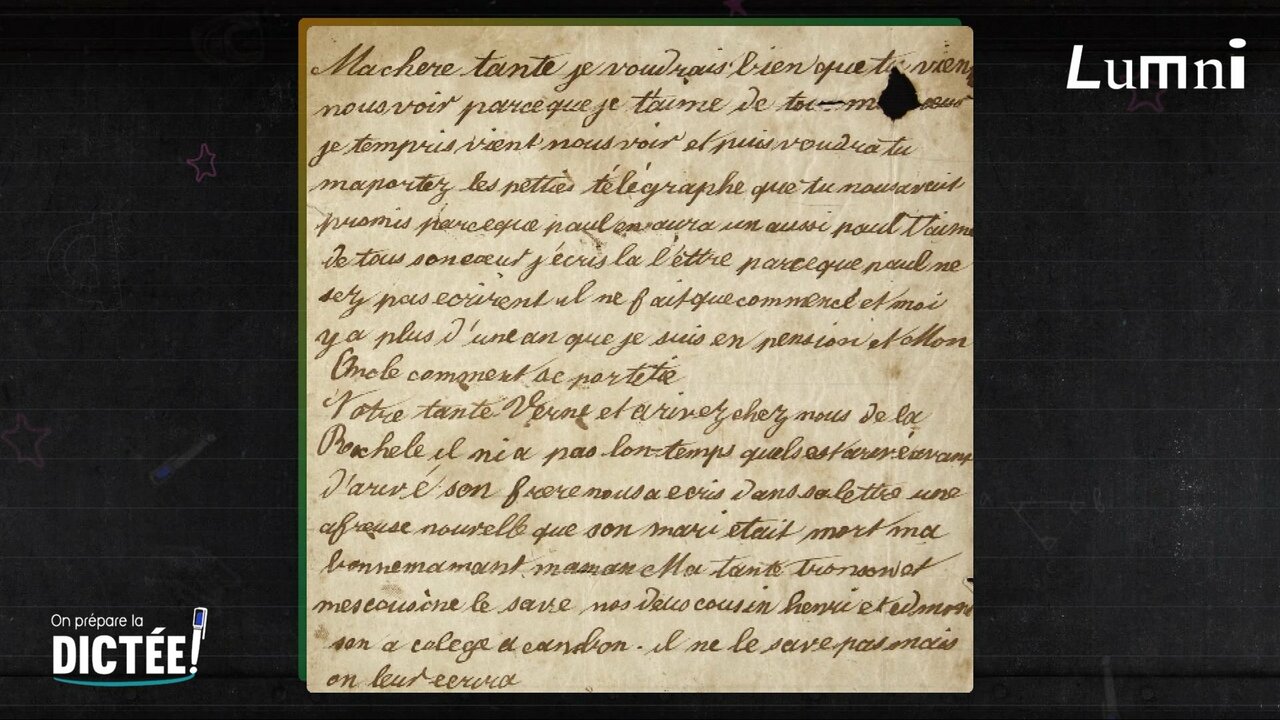 Lumni
Ma chere tante je voudrais bien que tu viens
nous voir parceque je t'aime de tou m cœur
je tempris vient nous voir et puis voudra tu
maportez les petties télégraphe que tu nous avait
promis parceque paul en aura un aussi paul t'aime
de tous son cœur j'écris la l'éttre parceque paul ne
sez pas ecrirent il ne fait que commencé et moi
y a plus d'une an que je suis en pension et Mon
Oncle comment se portetie
Votre tante Verne et arivez chez nous de la
Rochele il ni a pas lon-temps quels est arivé avant
d'arivé son frere nous a ecris dans sa lettre une
afreuse nouvelle que son mari etait mort ma
bonnemamant maman Ma tante tronson et
mes cousine le save nos deus cousin henri et edmon
son a colege a canbon. il ne le save pas mais
on leur ecrira
On prépare la
DICTÉE!